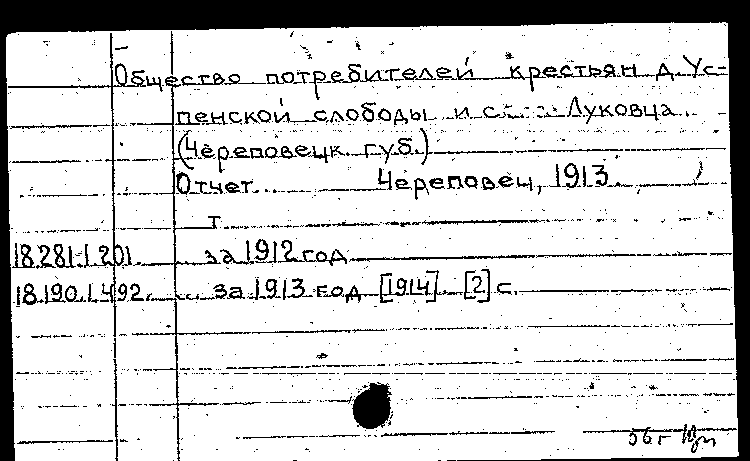 Общество потребителей крестьян д. Ус-
пенской слободы и с. Луковца.
(Череповецк. губ.)
Отчет... Череповец, 1913.
т.
18.281.1.201. ... за 1912 год
18.190.1.492. ... за 1913 год [1914]. [2] с.
56 г